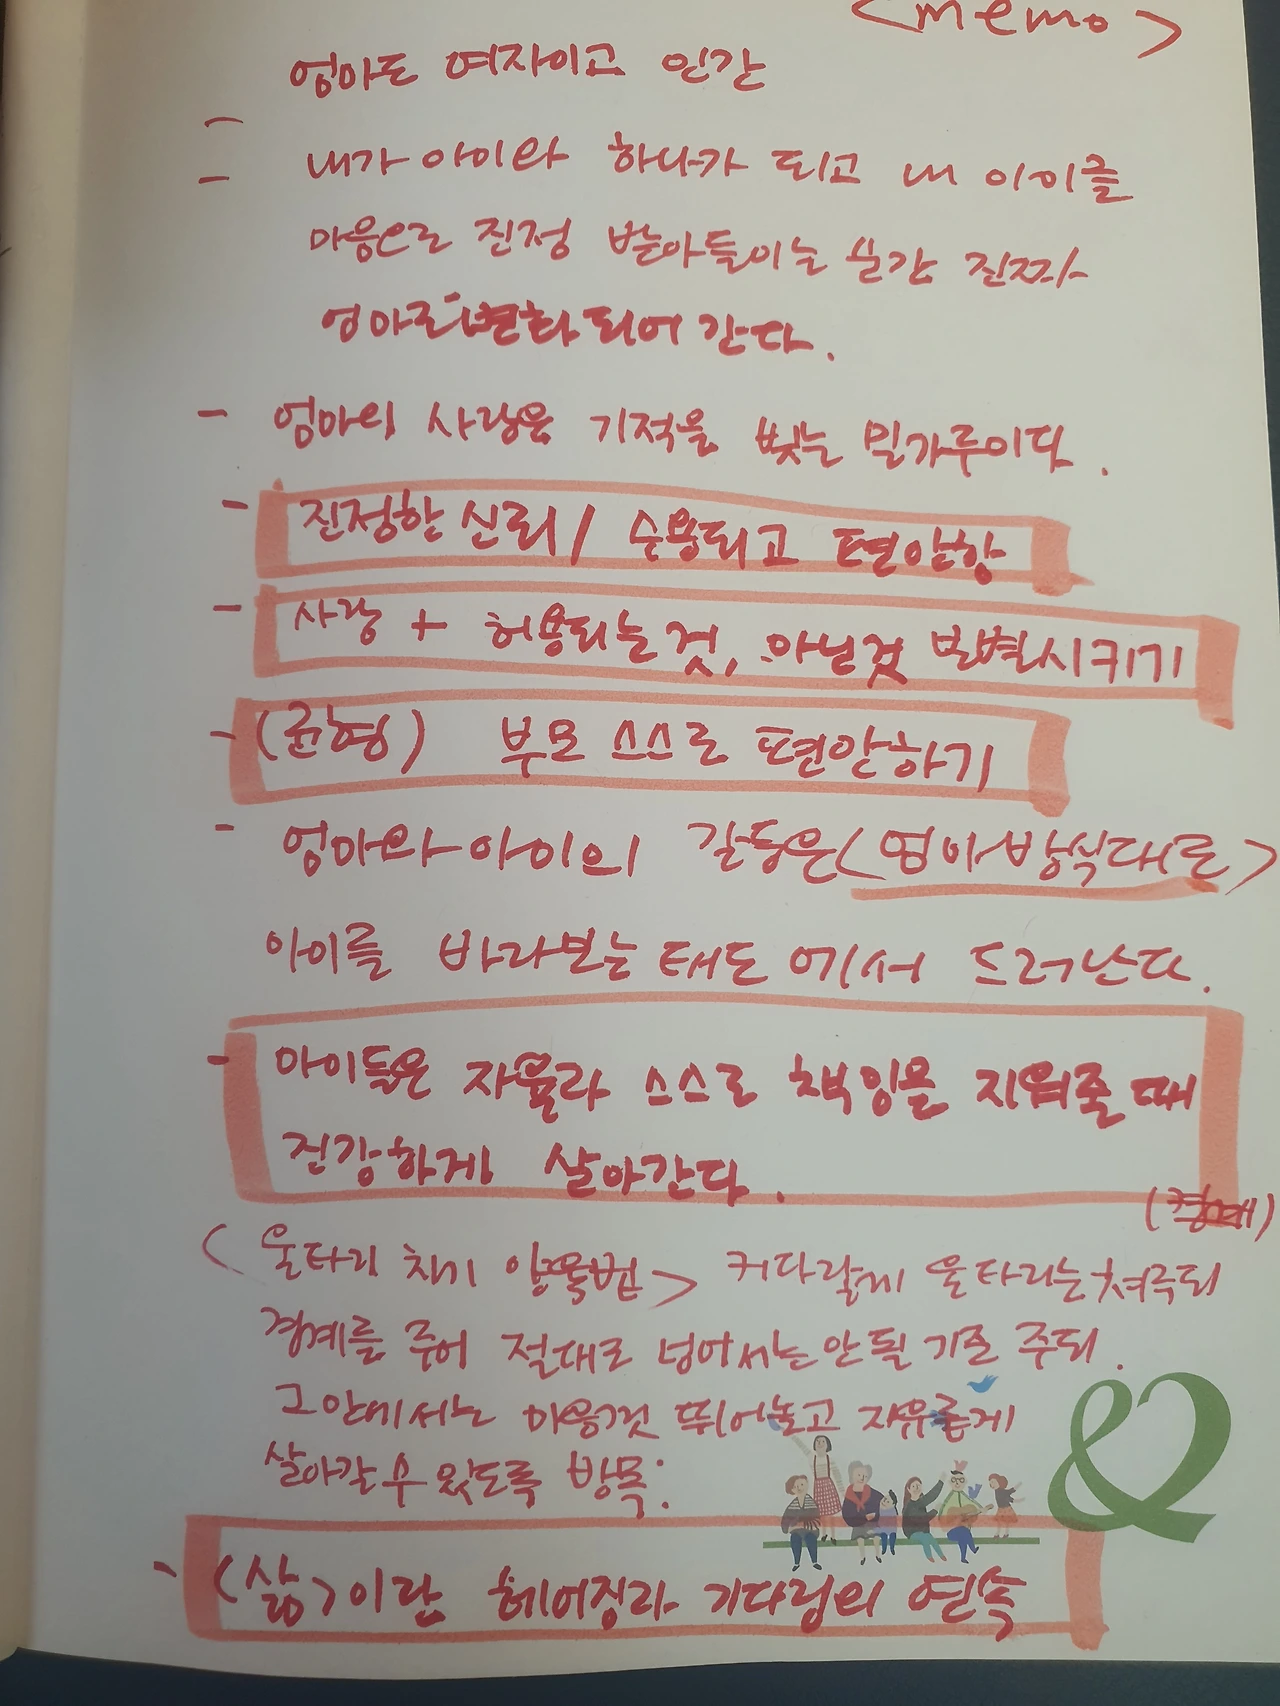 <memo>
엄마도 여자이고 인간
- 내가 아이와 하나가 되고 내 아이를
마음으로 진정 받아들이는 순간 진짜
엄마로 변화되어 간다.
- 엄마의 사랑은 기적을 빚는 밀가루이다.
- 진정한 신뢰 / 수용되고 편안함
- 사랑 + 허용되는 것, 아닌것 분별시키기
- (균형) 부모 스스로 편안하기
- 엄마와 아이의 갈등은 <엄마방식대로>
아이를 바라보는 태도에서 드러난다.
- 아이들은 자율과 스스로 책임을 지워줄 때
건강하게 살아간다.
<울타리 치기 양육법> 커다랗게 울타리는 쳐주되
경계를 주어 절대로 넘어서는 안될 기준 주되.
그 안에서는 마음껏 뛰어놀고 자유롭게
살아갈 수 있도록 방목:
- <삶>이란 헤어짐과 기다림의 연속